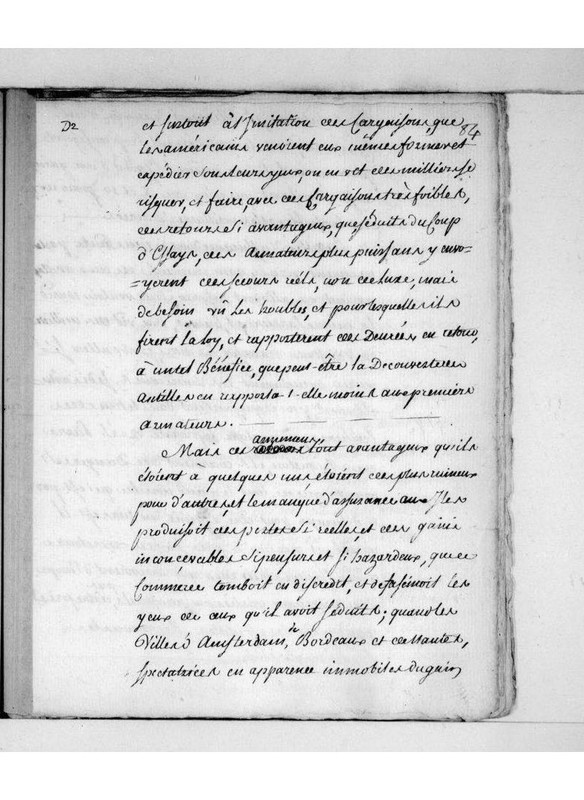 D2
84
et surtout à l'Imitation des Cargaisons, que
les américains venoient eux mêmes former et
expédier sous leurs yeux, on en vit des milliers se
risquer, et faire avec des Cargaisons très foibles,
des retours si avantageux, que séduits du Coup
d'Essay, des Armateurs plus puissans y envo-
-yerent des secours réels, non de Luxe, mais
de besoin vû les troubles, et pour lesquelles ils
firent la loy, et rapporterent des Denrées en retour,
à un tel Bénéfice, que peut-être la Decouverte des
Antilles en rapporta-t-elle moins aux premiers
armateurs.
Mais ces armemens tout avantageux qu'ils
étoient à quelques uns étoient des plus ruineux
pour d'autres et le manque d'assurance aux Isles
produisoit des pertes si réelles, et des gains
inconcevables si peu surs et si hazardeux, que ce
Commerce tomboit en discredit, et defascinoit les
yeux de ceux qu'il avoit séduits; quand les
Villes d'Amsterdam, de Bordeaux et de Nantes,
spectatrices en apparence immobiles du gain